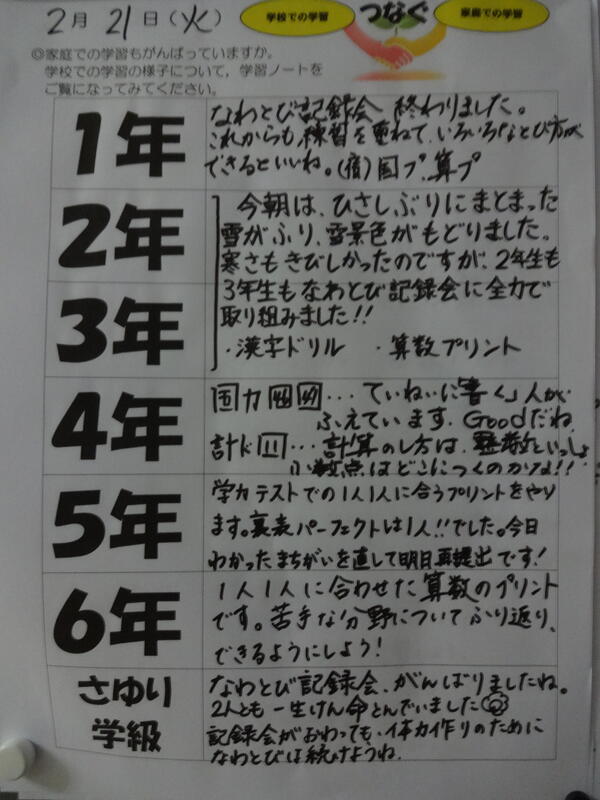 2月 21日(火)
学校での学習
つなぐ
家庭での学習
◎家庭での学習もがんばっていますか。
学校での学習の様子について，学習ノートを
ご覧になってみてください。
1年
なわとび記録会 終わりました。
これからも練習を重ねて、いろいろなとび方が
できるといいね。(宿)国プ、算プ
2年
3年
今朝は、ひさしぶりにまとまった
雪がふり、雪景色がもどりました。
寒さもきびしかったのですが、2年生も
3年生もなわとび記録会に全力で
取り組みました!!
・漢字ドリル ・算数プリント
4年
国力 48 49 … ていねいに書く人が
ふえています。Goodだね
計ド 11 … 計算のし方は、整数といっしょ
小数点はどこにつくのかな!!
5年
学力テストでの1人1人に合うプリントをやり
ます。裏表パーフェクトは1人!!でした。今日
わかったまちがいを直して明日再提出です!
6年
1人1人に合わせた算数のプリント
です。苦手な分野についてふり返り、
できるようにしよう!
さゆり
学級
なわとび記録会、がんばりましたね。
2人とも一生けん命とんでいました
記録会がおわっても、体力作りのために
なわとびは続けようね